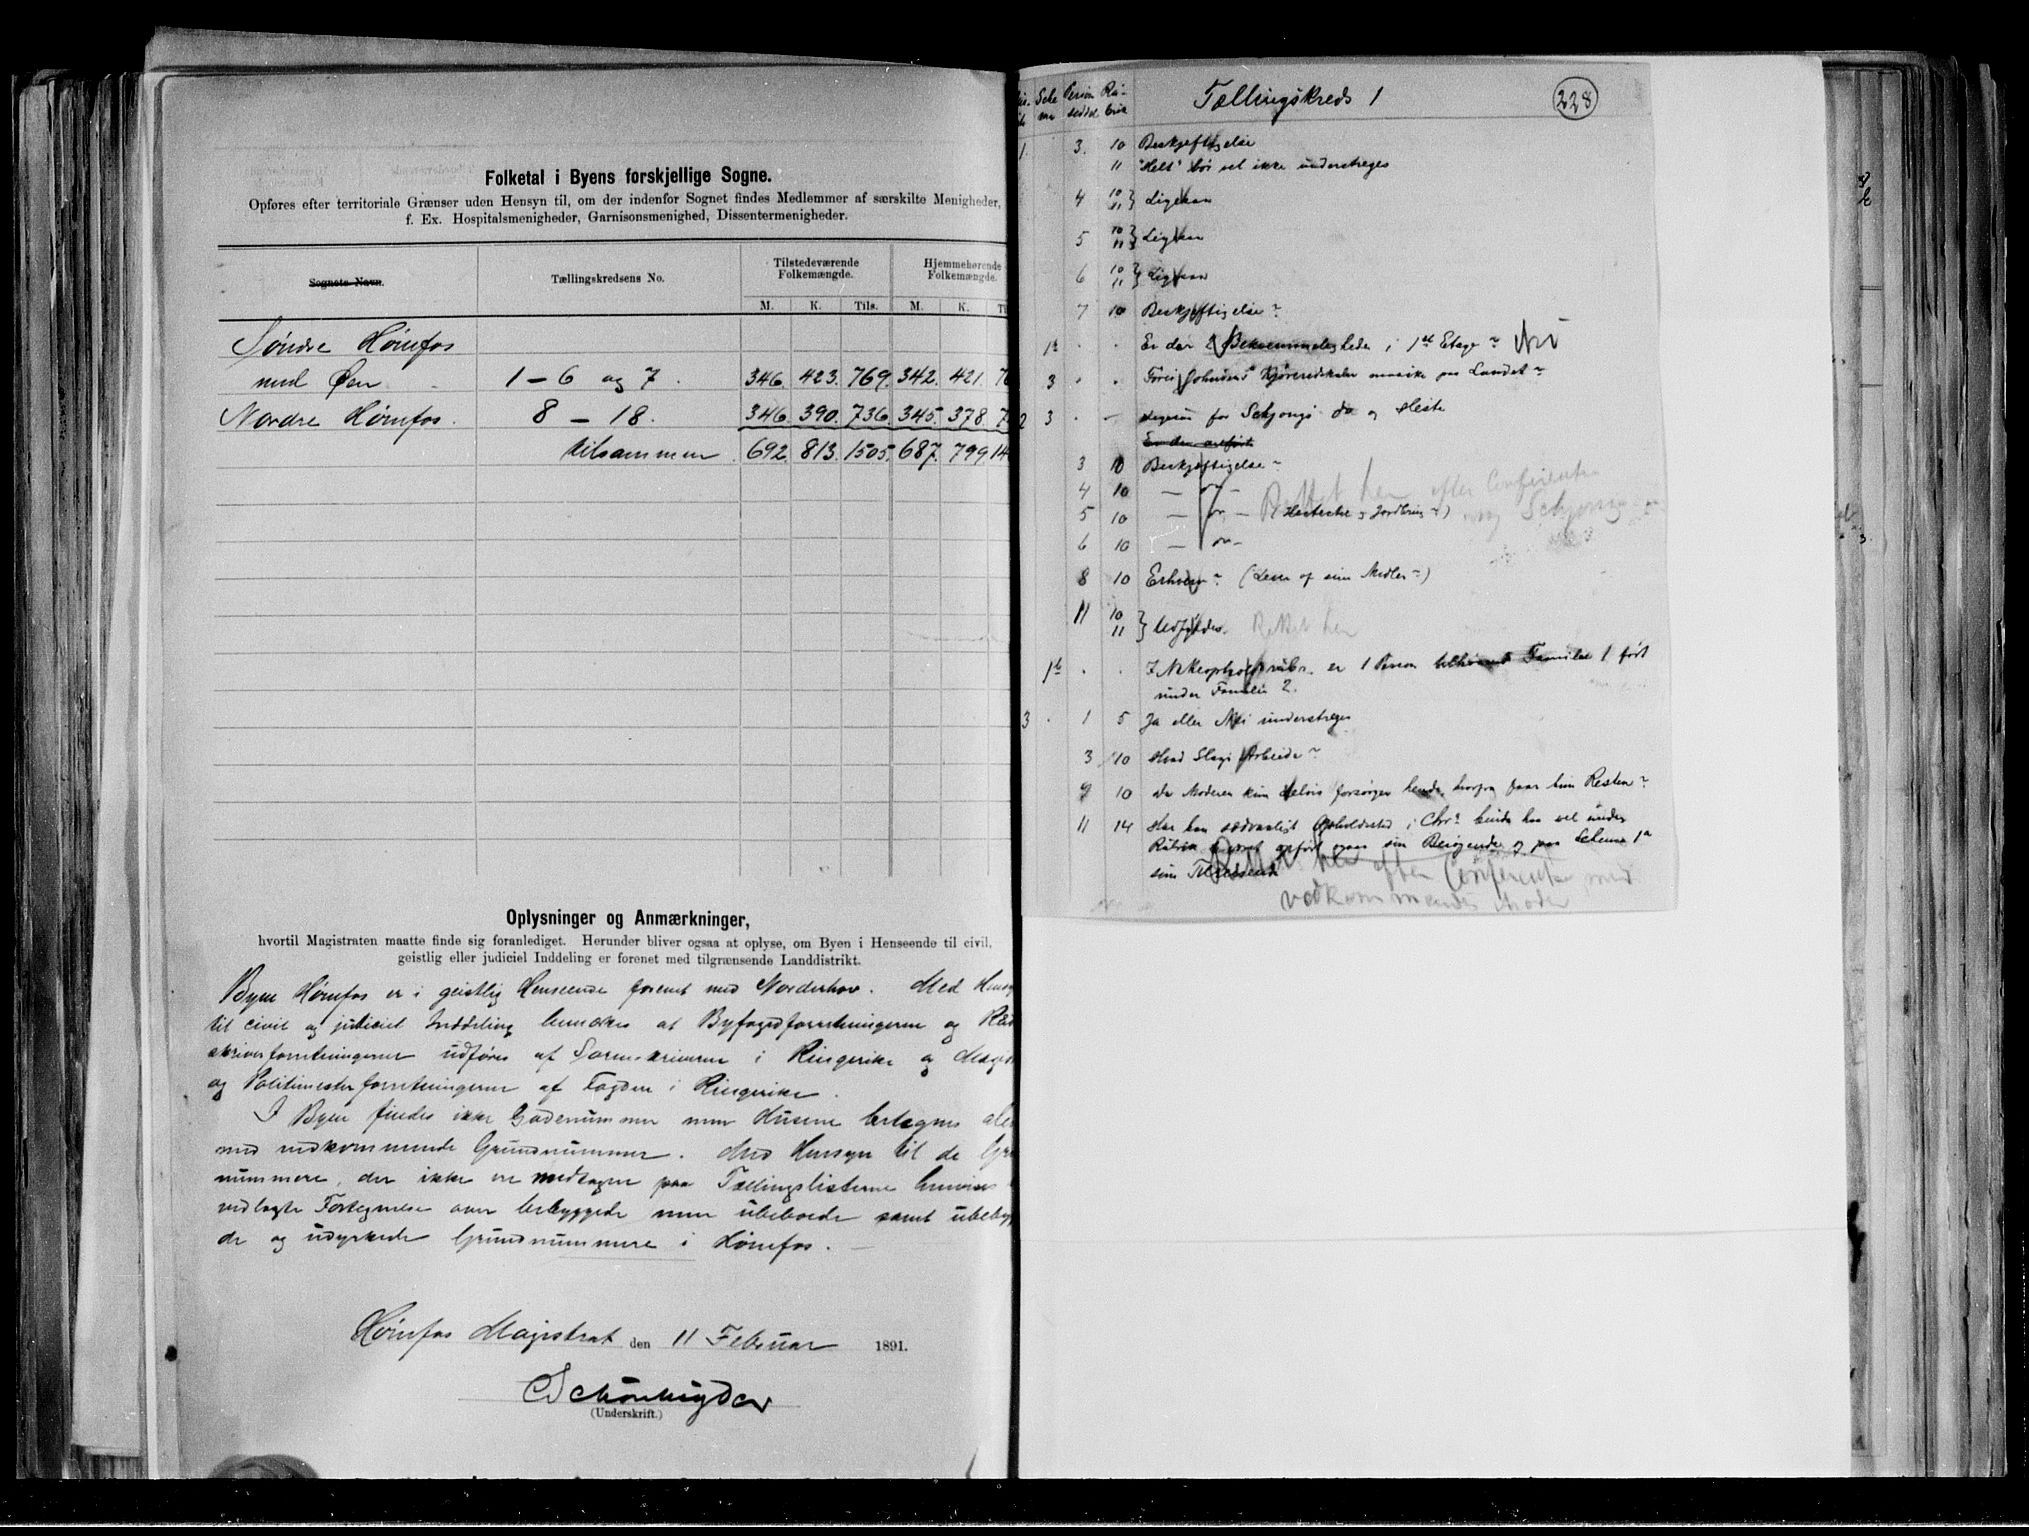 Folketal i Byens forskjellige Sogne.
Opføres efter territoriale Grænser uden Hensyn til, om der indenfor Sognet findes Medlemmer af særskilte Menigheder,
f. Ex. Hospitalsmenigheder, Garnisonsmenighed, Dissentermenigheder.
Sognets Navn. Tællingskredsens No. Tilstedeværende Folkemængde. Hjemmehørende Folkemængde.
M. K. Tils. M. K.
Søndre Hønefos
med Øen 1 – 6 og 7. 346. 423. 769. 342. 421.
Nordre Hønefos. 8 – 18. 346. 390. 736. 345. 378.
tilsammen 692. 813. 1505. 687. 799.
Oplysninger og Anmærkninger,
hvortil Magistraten maatte finde sig foranlediget. Herunder bliver ogsaa at oplyse, om Byen i Henseende til civil,
geistlig eller judiciel Inddeling er forenet med tilgrænsende Landdistrikt.
Byen Hønefos er i geistlig Henseende forenet med Norderhov. Med
til civil og judiciel Inddeling bemærkes at Byfogedforretningerne og
skriverforretningerne udføres af Sorenskriveren i Ringerike og
og Politimesterforretningerne af Fogden i Ringerike.
I Byen findes ikke Gadenummer men Husene betegnes
med vedkommende Grundnummer. Med Hensyn til de
nummere, der ikke ere medtagne paa Tællingslisterne henvises
vedlagte Fortegnelse over bebyggede men ubeboede samt
de og udyrkede Grundnummere i Hønefos. —
Hønefos Magistrat den 11 Februar 1891.
(Underskrift.)
Sche ma Person seddel Ru- brik Tællingskreds 1 228
1. 3. 10 Beskjeftigelse
11 "Helt" bør vel ikke understreges
4 10 11 } Ligesaa
5 10 11 } Ligesaa
6 10 11 } Ligesaa
7 10 Beskjeftigelse?
1a . . Er der 2 Bekvemmeligheder i 1ste Etage? Nei
3 . . Kjøreredskaber maaske paa Landet?
2 3 . — Ligesaa for Schjongs do og Heste
3 10 Beskjeftigelse?
4 10 — do — Rettet her efter Conference
5 10 — do — (Hesteske og Jordbrug?) Schjong
6 10 — do —
8 10 Erhverv? (Lever af sine Midler?)
11 10 11 } Udfyldes. Rettet her
1b . . er 1 Person tilhørende Familie 1 ført
under Familie 2.
3 . 1 5 Ja eller Nei understreges
3 10 Hvad Slags Arbeide?
9 10 Da Moderen kun delvis forsørger hende, hvorfra faar hun Resten?
11 14 Har han sædvanligt Opholdssted i Chra burde han vel under
Rubrik været opført som Besøgende og paa Schema 1a
som Tilstede
Rettet her efter Conference med
vedkommendes Moder